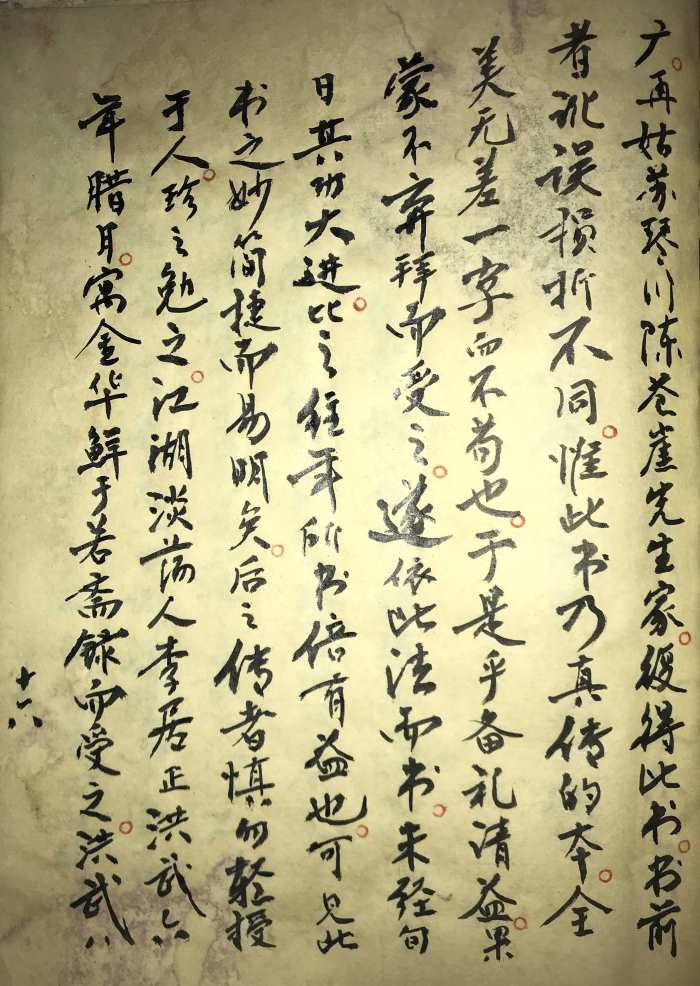 广。再姑苏琴川陈苍崖先生家。復得此书。书前
者讹误损折不同。惟此书乃真传的本。全
美无差一字而不苟也。于是乎备礼请益。果
蒙不弃拜而受之。遂依此法而书。未经旬
日其功大进。比之往年所书倍有益也。可见此
书之妙简捷而易明矣。后之传者慎勿轻授
于人。珍之勉之。江湖淡荡人李居正洪武六
年腊月。寓金华鲜于若斋録而受之。洪武八
十六